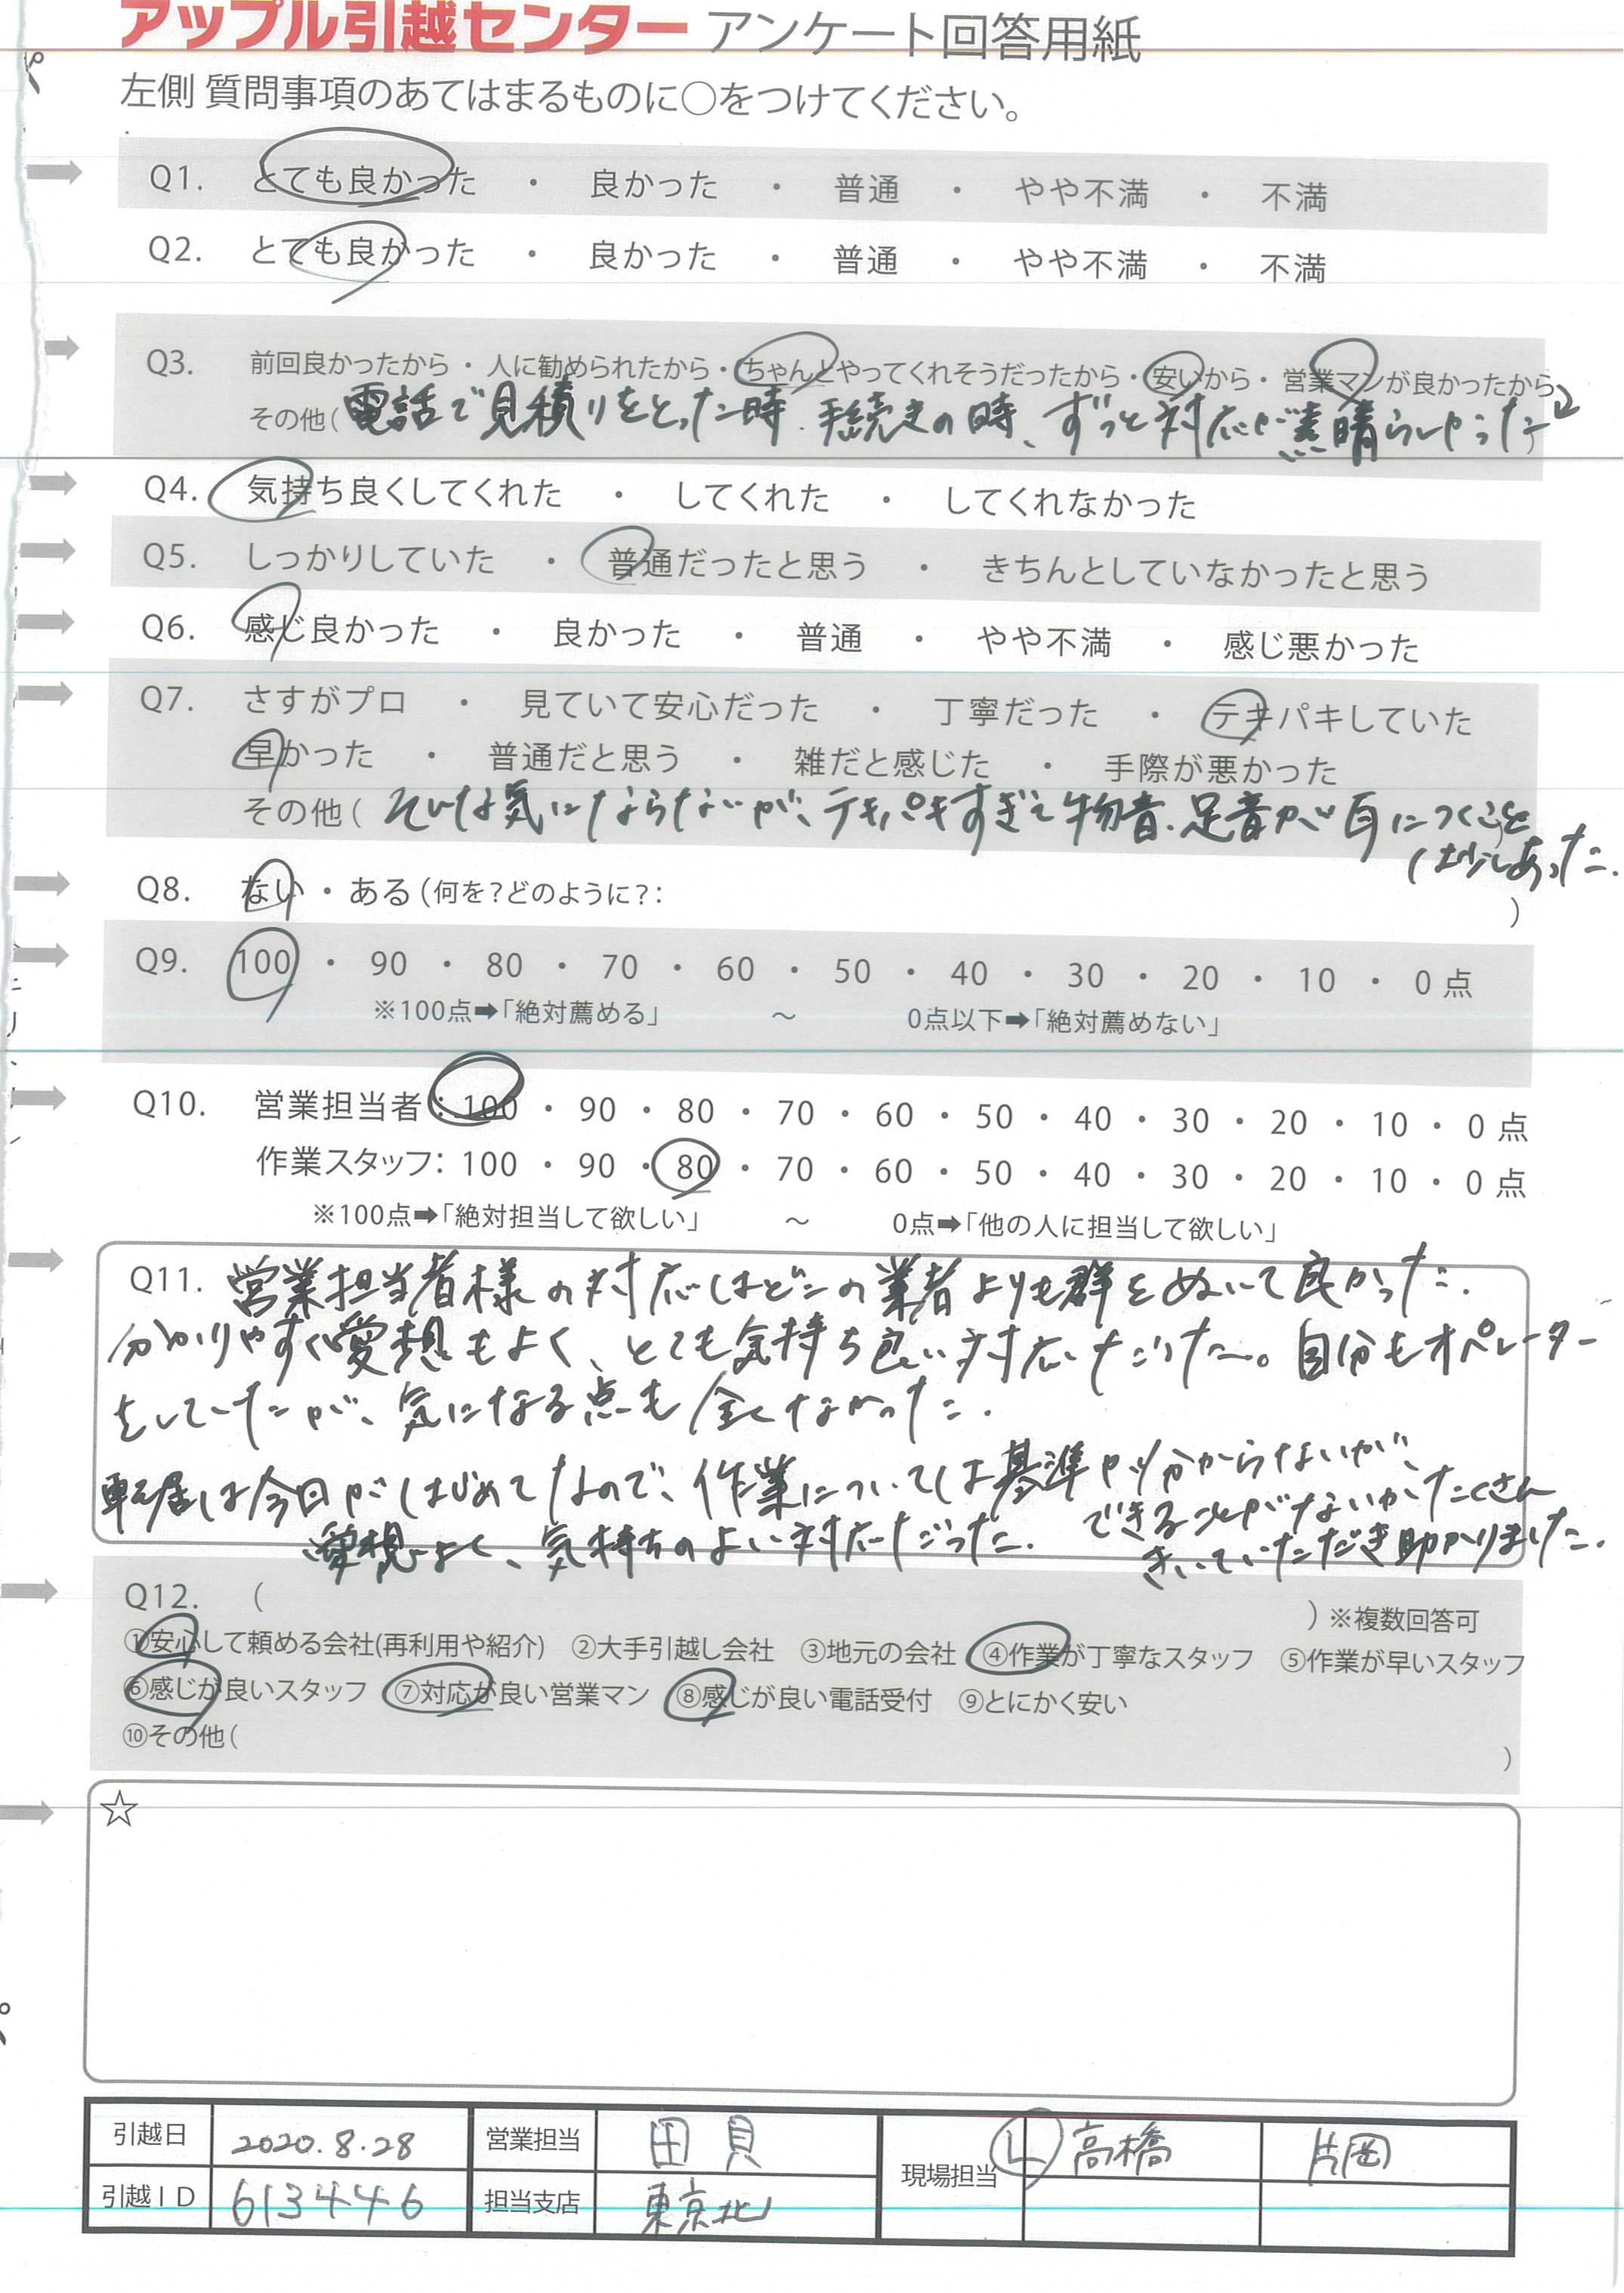 アップル引越センター アンケート回答用紙
左側 質問事項のあてはまるものに○をつけてください。
Q1. とても良かった ・ 良かった ・ 普通 ・ やや不満 ・ 不満
Q2. とても良かった ・ 良かった ・ 普通 ・ やや不満 ・ 不満
Q3. 前回良かったから ・ 人に勧められたから ・ ちゃんとやってくれそうだったから ・ 安いから ・ 営業マンが良かったから
その他( 電話で見積りをとった時、手続きの時、ずっと対応が素晴らしかった )
Q4. 気持ち良くしてくれた ・ してくれた ・ してくれなかった
Q5. しっかりしていた ・ 普通だったと思う ・ きちんとしていなかったと思う
Q6. 感じ良かった ・ 良かった ・ 普通 ・ やや不満 ・ 感じ悪かった
Q7. さすがプロ ・ 見ていて安心だった ・ 丁寧だった ・ テキパキしていた
早かった ・ 普通だと思う ・ 雑だと感じた ・ 手際が悪かった
その他( そんな気にならないが、テキパキすぎて物音、足音が耳につくこと
は少しあった。
Q8. ない ・ ある (何を?どのように?: )
Q9. 100 ・ 90 ・ 80 ・ 70 ・ 60 ・ 50 ・ 40 ・ 30 ・ 20 ・ 10 ・ 0 点
※100点➡「絶対薦める」 ～ 0点以下➡「絶対薦めない」
Q10. 営業担当者: 100 ・ 90 ・ 80 ・ 70 ・ 60 ・ 50 ・ 40 ・ 30 ・ 20 ・ 10 ・ 0 点
作業スタッフ: 100 ・ 90 ・ 80 ・ 70 ・ 60 ・ 50 ・ 40 ・ 30 ・ 20 ・ 10 ・ 0 点
※100点➡「絶対担当して欲しい」 ～ 0点➡「他の人に担当して欲しい」
Q11. 営業担当者様の対応はどこの業者よりも群をぬいて良かった。
分かりやすく愛想もよく、とても気持ち良い対応だった。自分もオペレーター
をしていたが、気になる点も全くなかった。
転居は今回がはじめてなので、作業については基準が分からないが、
愛想よく、気持ちのよい対応だった。
できることがないか、たくさん
きいていただき助かりました。
Q12. ( ) ※複数回答可
①安心して頼める会社(再利用や紹介) ②大手引越し会社 ③地元の会社 ④作業が丁寧なスタッフ ⑤作業が早いスタッフ
⑥感じが良いスタッフ ⑦対応が良い営業マン ⑧感じが良い電話受付 ⑨とにかく安い
⑩その他( )
☆
引越日 2020.8.28 営業担当 田貝 現場担当 L 高橋 片岡
引越ID 613446 担当支店 東京北